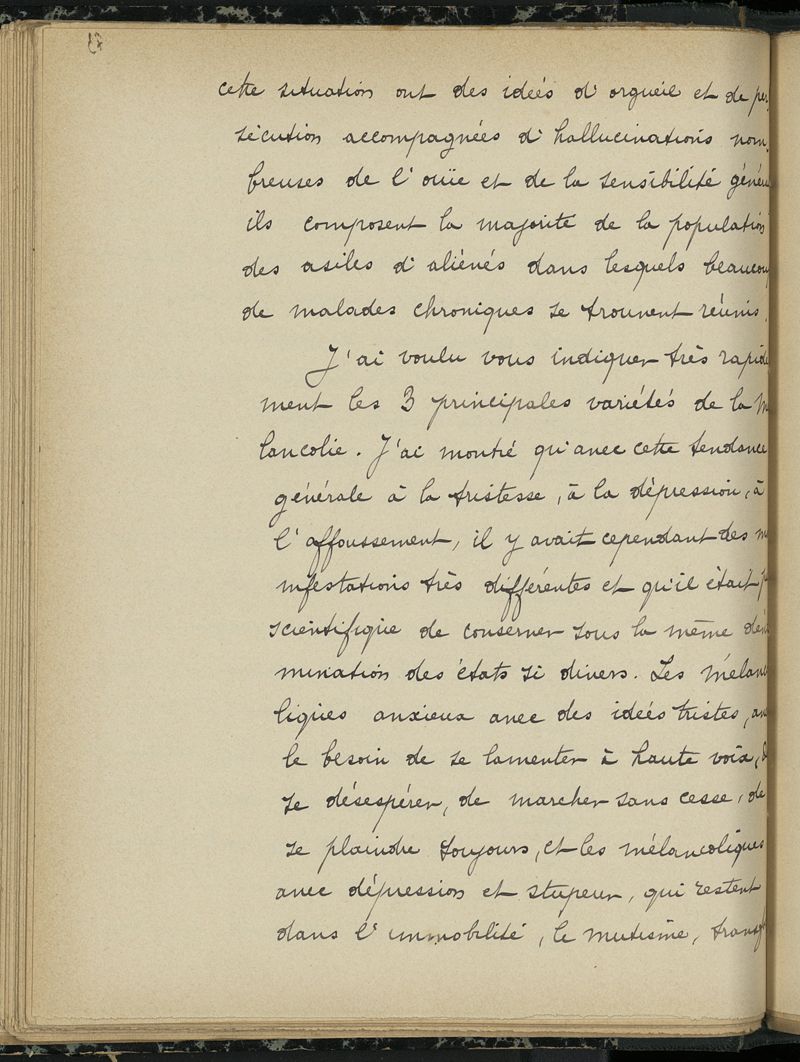 cette situation ont des idées d'orgueil et de per
sécution accompagnées d'hallucinations nom-
breuses de l'ouïe et de la sensibilité généra
ils composent la majorité de la population
des asiles d'aliénés dans lesquels beaucoup
de malades chroniques se trouvent réunis.
J'ai voulu vous indiquer très rapide
ment les 3 principales variétés de la M
lancolie. J'ai montré qu'avec cette tendance
générale à la tristesse, à la dépression, à
l'affoussement, il y avait cependant des m
nifestations très différentes et qu'il était p
scientifique de conserver sous la même dén
mination des états si divers. Les mélanc
liques anxieux avec des idées tristes, av
le besoin de se lamenter à haute voix, d
se désespérer, de marcher sans cesse, de
se plaindre toujours, et les mélancoliques
avec dépression et stupeur, qui restent
dans l'immobilité, le mutisme, transf